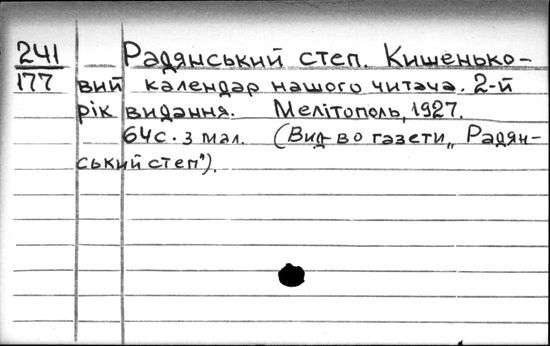 241 Радянський степ. Кишенько-
177 вий календар нашого читача. 2-й
рік видання. Мелітополь, 1927.
64с. з мал. (Вид-во газети „Радян-
ський степ").